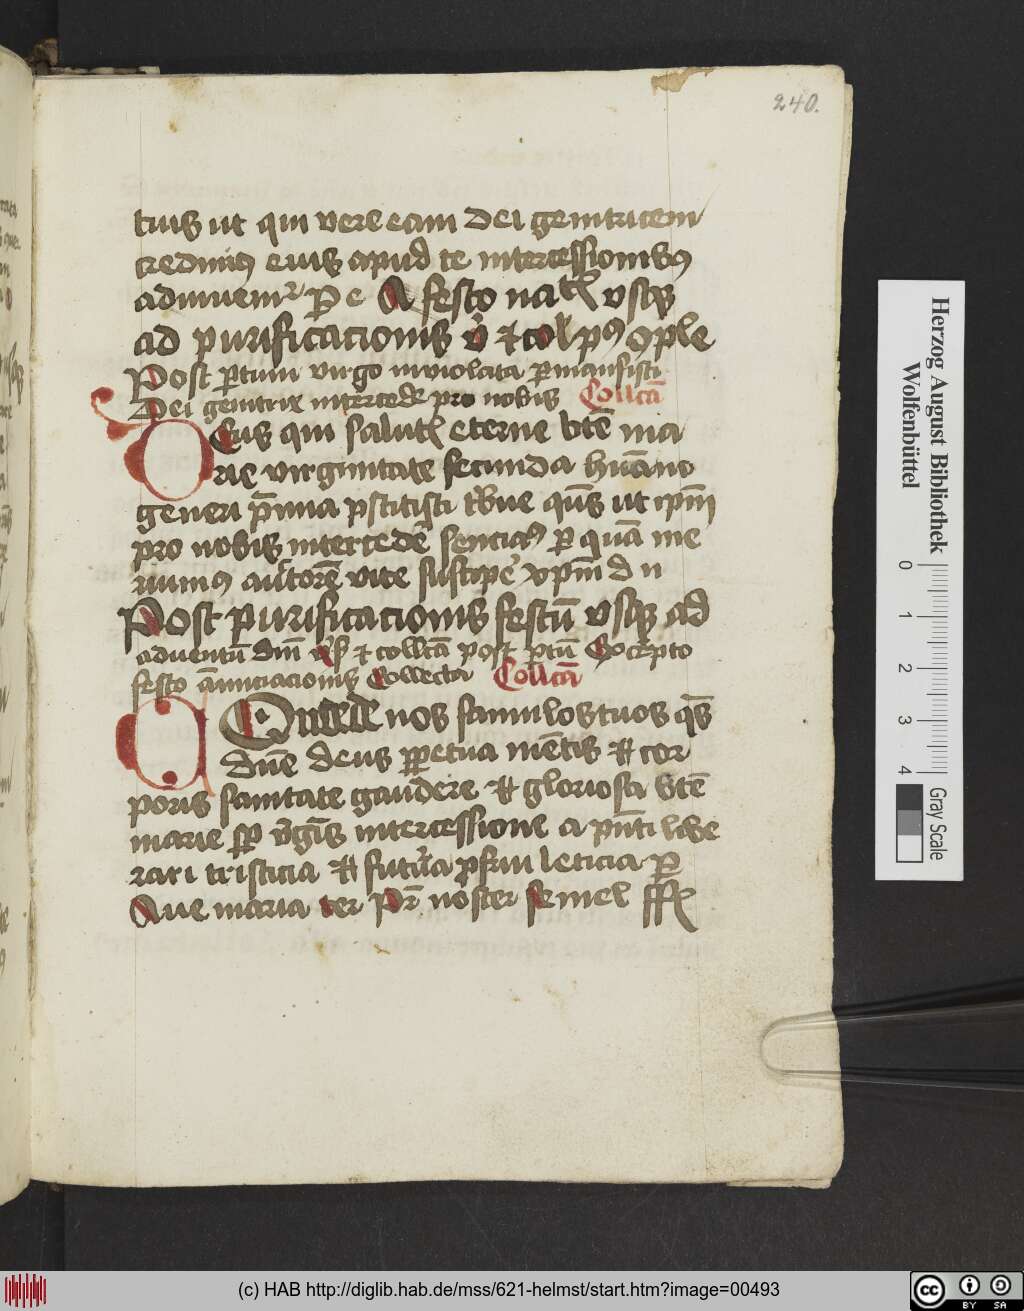 240.
tuis ut qui vere eam dei genitricem
credimus eius apud te intercessionibus
adiuvemur Pe A festo natl usq
ad purificacionis v et col pus 9ple
Post ptum virgo inviolata pmansisti
Dei genitrix intercede pro nobis Collcta
Deus qui salutis eterne bte ma
rie virginitate fecunda humano
generi pmia pstitisti tbue qus ut ipam
pro nobis intercede senciam9 p quam me
ruimus auctore vite suscipe xpm d n
Post purificacionis festum usq ad
adventum dni vs et collcta post ptum Excepto
festo annunciacionis Collecta Collcta
Concede nos famulos tuos qs
dne deus ppetua mentis et cor
poris sanitate gaudere et gloriosa bte
marie sp vgis intercessione a pnti libe
rari tristicia et futura pfrui leticia P
Ave maria ter Pr noster semel
Herzog August Bibliothek
Wolfenbüttel
0 1 2 3 4
Gray Scale
(c) HAB http://diglib.hab.de/mss/621-helmst/start.htm?image=00493
cc BY SA